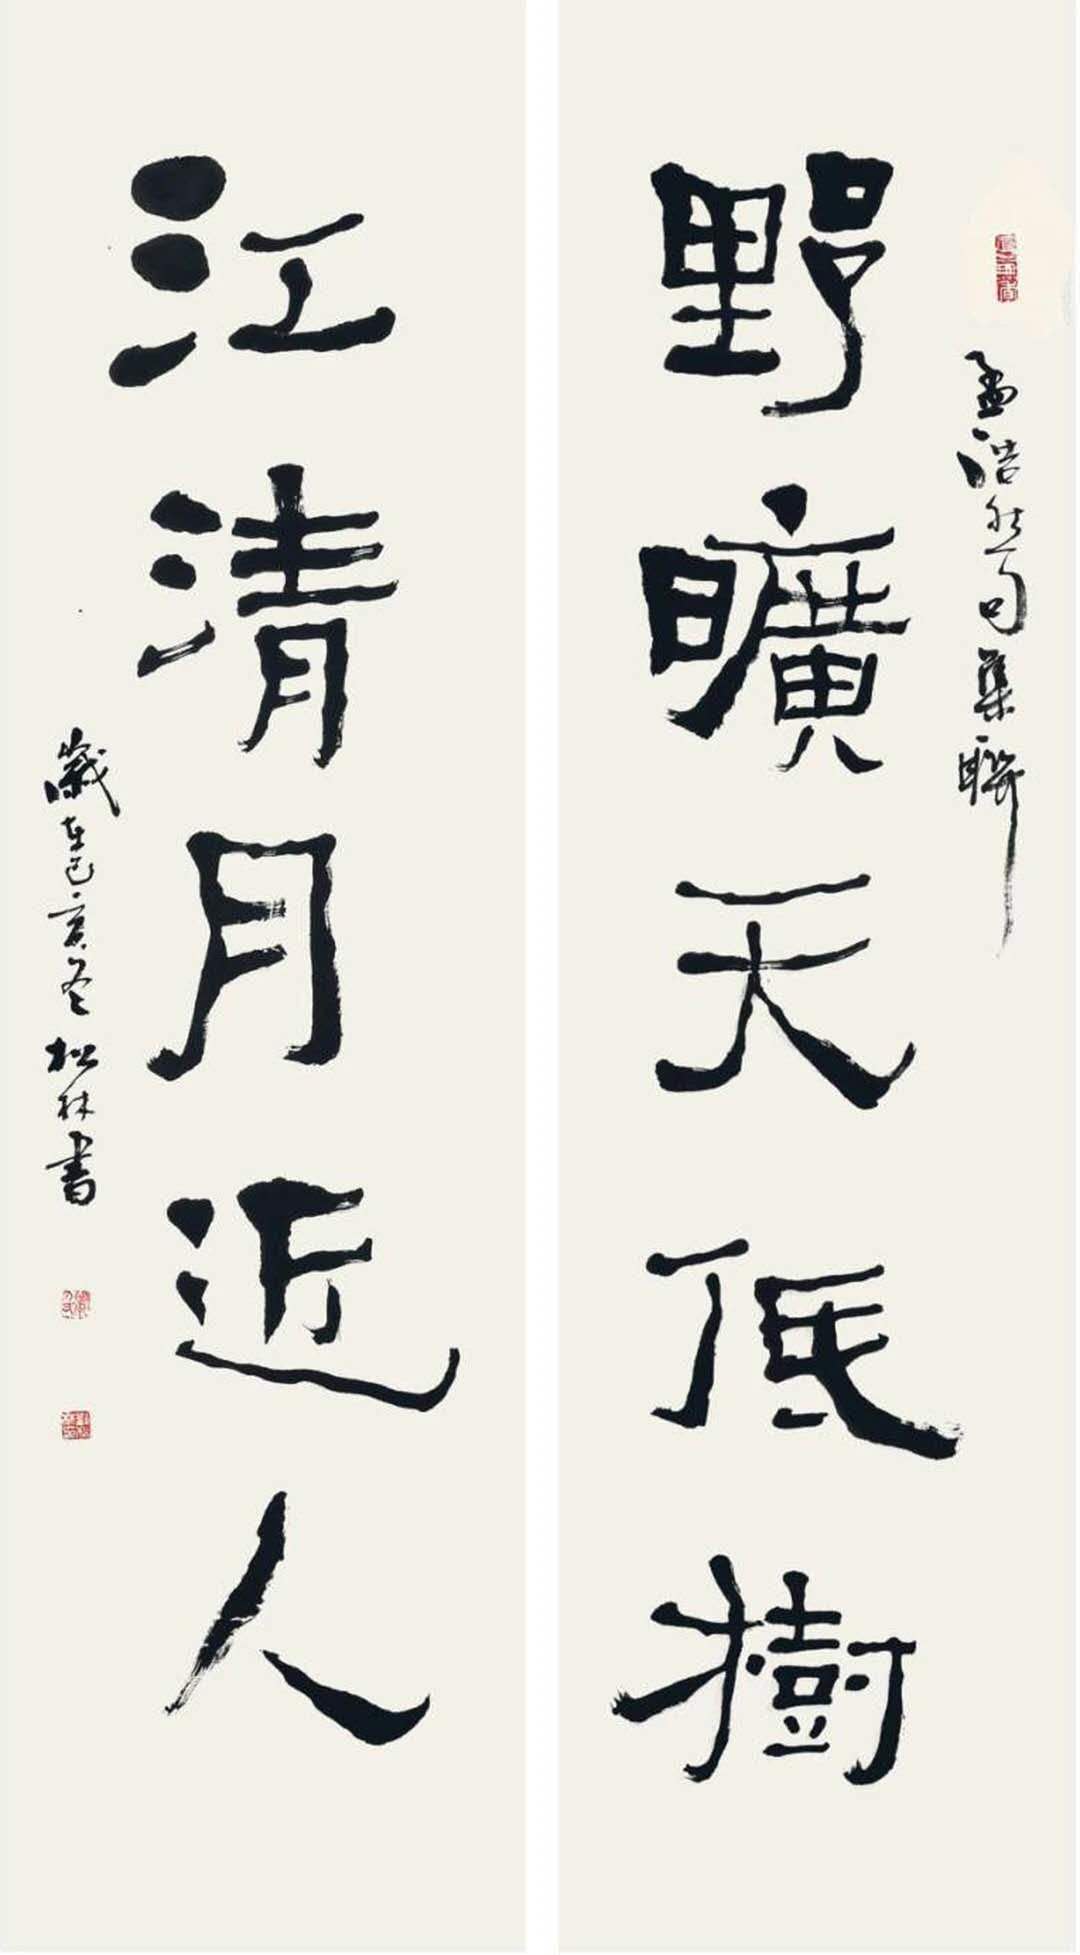 孟浩然句集聯
野曠天低樹
江清月近人
歲在己亥冬松林書